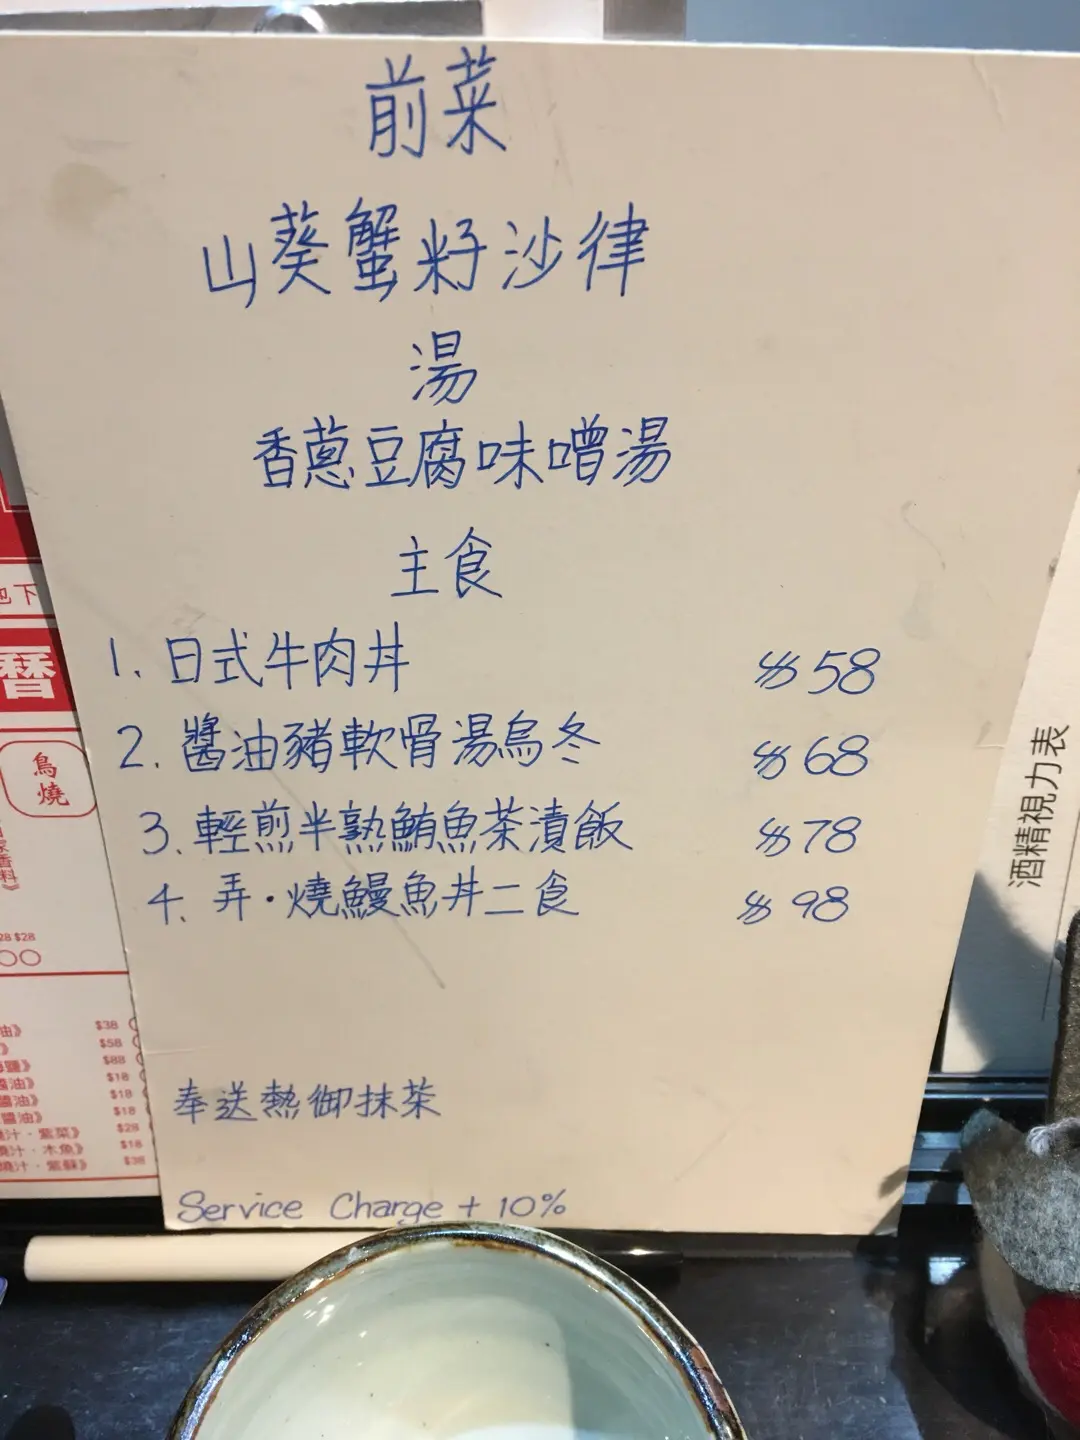 前菜
山葵蟹籽沙律
湯
香蔥豆腐味噌湯
主食
1. 日式牛肉丼 $58
2. 醬油豬軟骨湯烏冬 $68
3. 輕煎半熟鮪魚茶漬飯 $78
4. 弄·燒鰻魚丼二食 $98
奉送熱御抹茶
Service Charge + 10%
地下
酒精視力表
鳥
燒
$28
$38
$58
$88
醬油》 $18
醬油》 $18
醬油》 $18
汁·紫菜》 $28
汁·木魚》 $18
燒汁·紫蘇》 $38